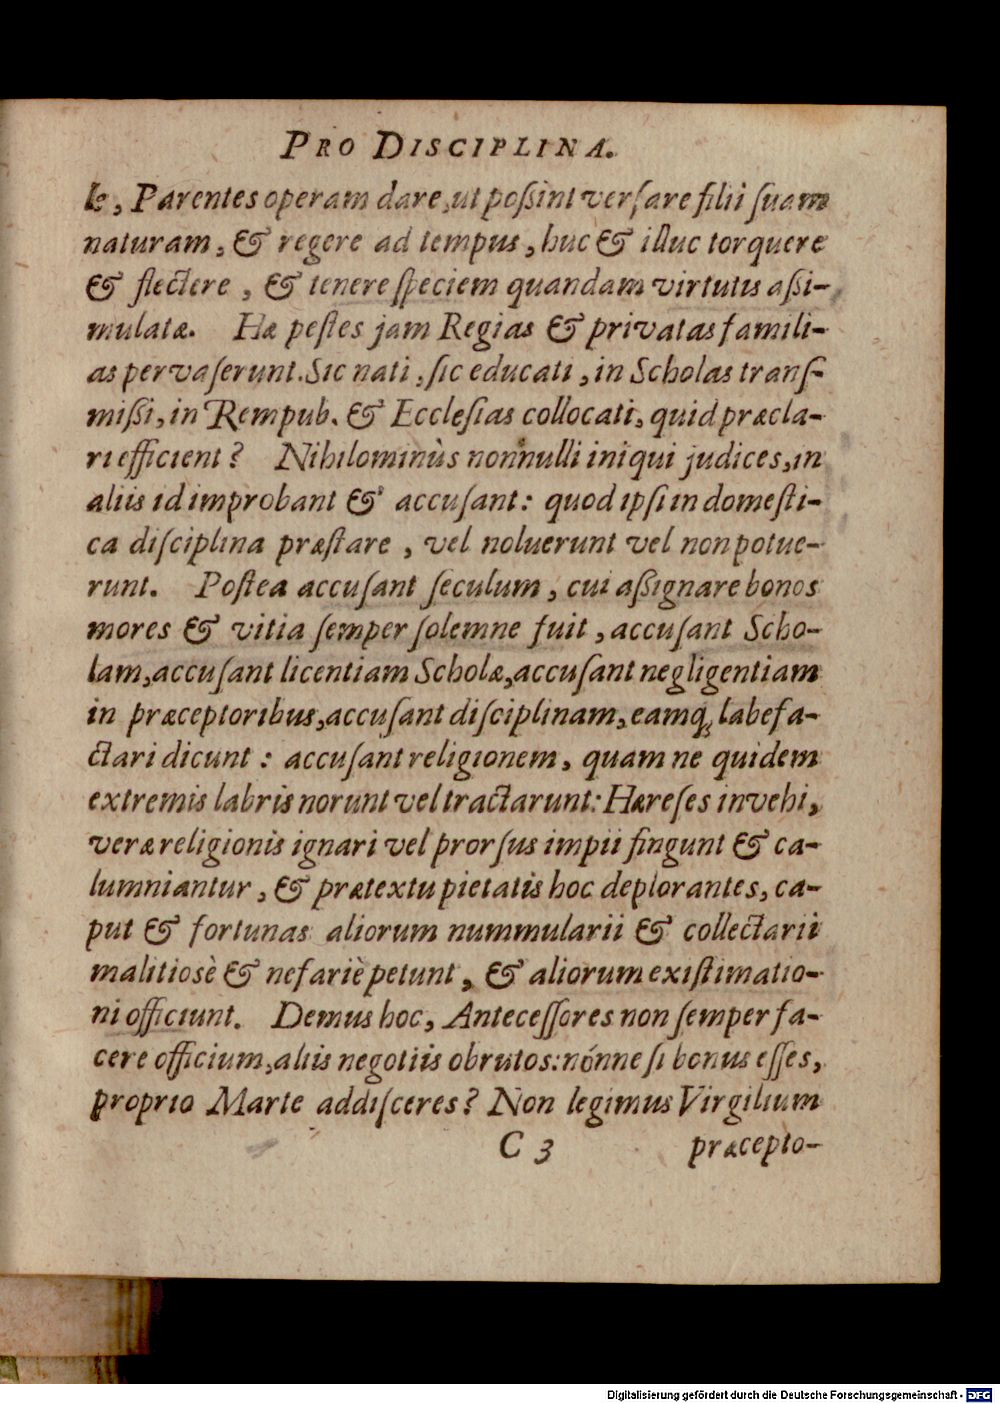 PRO DISCIPLINA.
le, Parentes operam dare, ut poßint verſare filii ſuam
naturam, & regere ad tempus, huc & illuc torquere
& flectere, & tenere ſpeciem quandam virtutis aßi-
mulatæ. Hæ peſtes jam Regias & privatas famili-
as pervaſerunt. Sic nati, ſic educati, in Scholas tranſ-
mißi, in Rempub. & Eccleſias collocati, quid præcla-
ri efficient? Nihilominùs nonnulli iniqui judices, in
aliis id improbant & accuſant: quod ipſi in domeſti-
ca diſciplina præſtare, vel noluerunt vel non potue-
runt. Poſtea accuſant ſeculum, cui aßignare bonos
mores & vitia ſemper ſolemne fuit, accuſant Scho-
lam, accuſant licentiam Scholæ, accuſant negligentiam
in præceptoribus, accuſant diſciplinam, eamq; labefa-
ctari dicunt: accuſant religionem, quam ne quidem
extremis labris norunt vel tractarunt: Hæreſes invehi,
veræ religionis ignari vel prorſus impii fingunt & ca-
lumniantur, & prætextu pietatis hoc deplorantes, ca-
put & fortunas aliorum nummularii & collectarii
malitiosè & nefariè petunt, & aliorum exiſtimatio-
ni officiunt. Demus hoc, Anteceſſores non ſemper fa-
cere officium, aliis negotiis obrutos: nónne ſi bonus eſſes,
proprio Marte addiſceres? Non legimus Virgilium
C 3 præcepto-
Digitalisierung gefördert durch die Deutsche Forschungsgemeinschaft - DFG